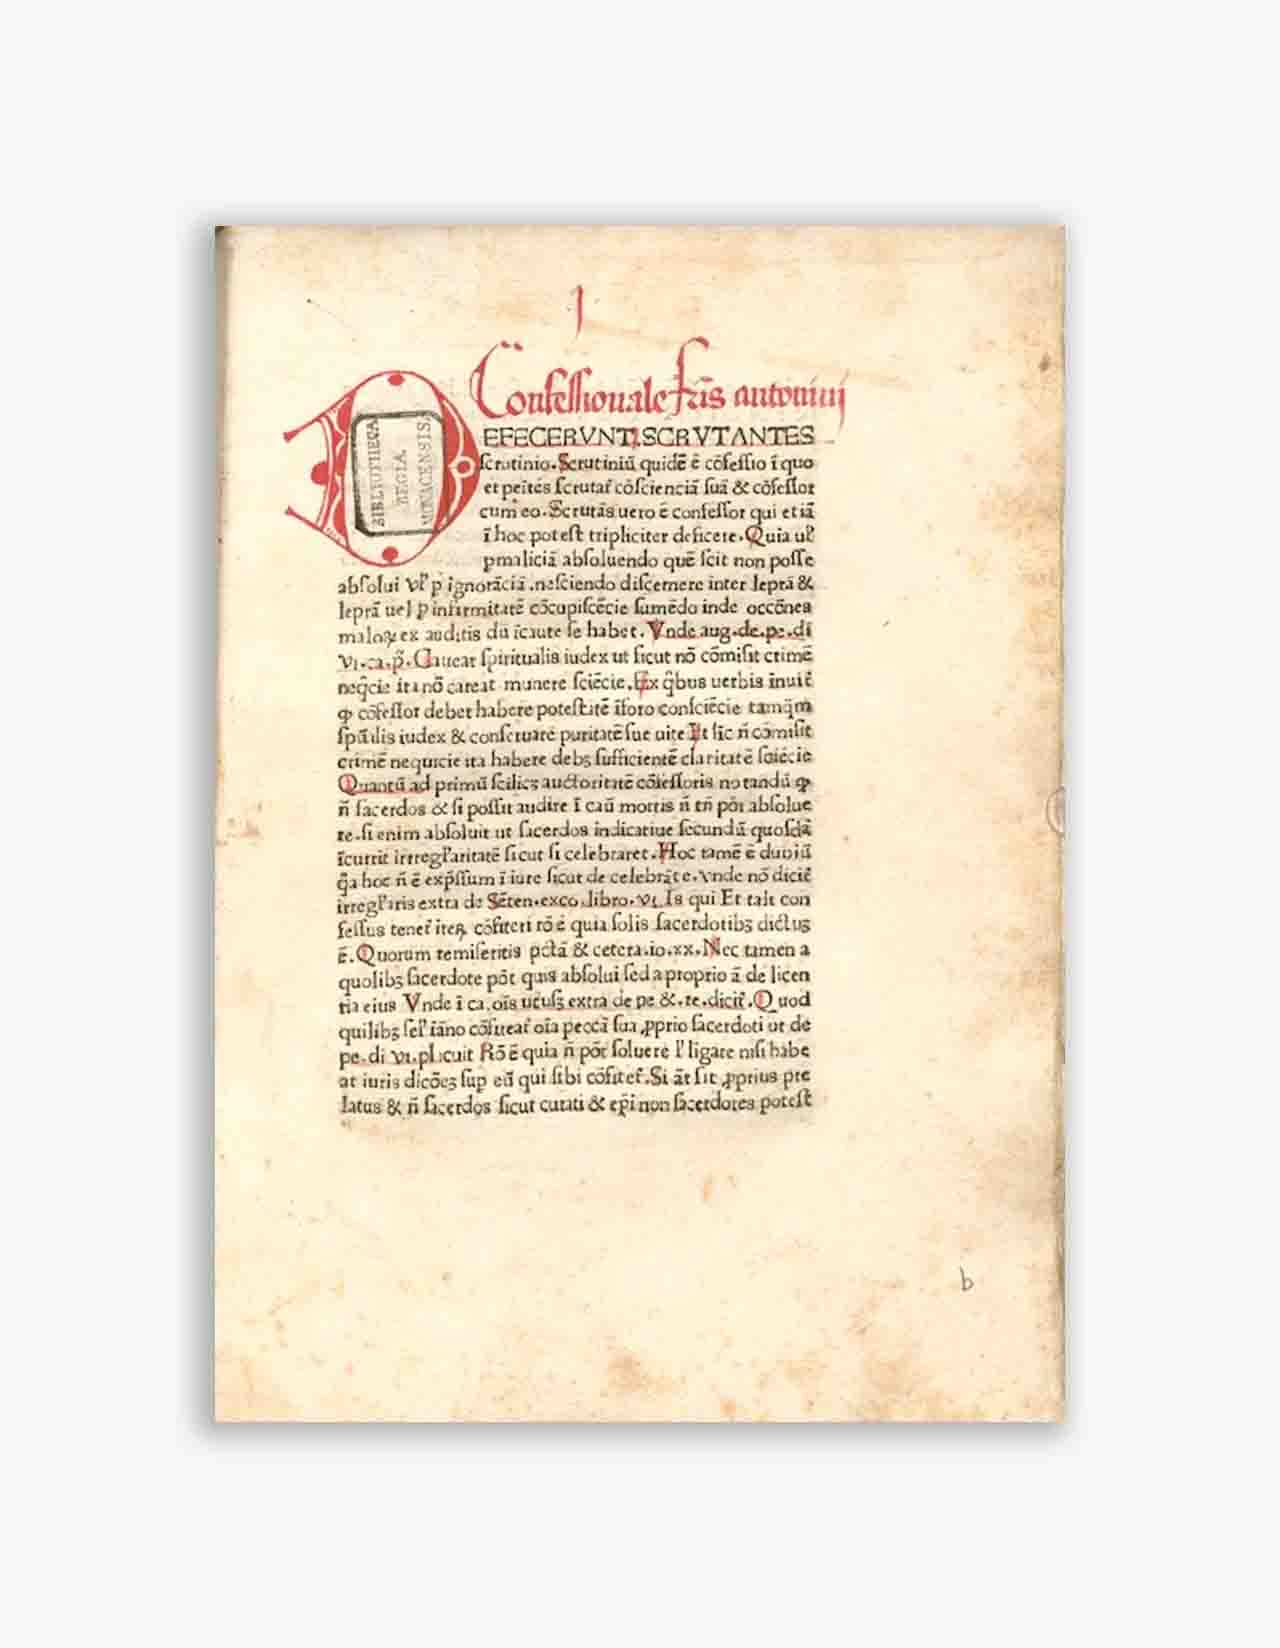 Confessionale fr̄is antonini
DEFECERVNT. SCRVTANTES
scrutinio. Scrutiniū quidē ē cōfessio ī quo
et peītēs scrutat̄ cōscienciā suā & cōfessor
cum eo. Scrutās uero ē confessor qui et iā
ī hoc potest tripliciter deficere. Quia ul̄
p maliciā absoluendo quē scit non posse
absolui vl̄ p ignorāciā .nesciendo discernere inter leprā &
leprā uel p infirmitatē cōcupiscēcie sumēdo inde occōnes
maloꝝ ex auditis dū īcaute se habet. Vnde aug. de. pe. di
vi. ca. p̄. Caueat spiritualis iudex ut sicut nō cōmisit crimē
neq̄cie ita nō careat munere sciēcie. Ex q̄bus uerbis īnuit̄
ꝙ cōfessor debet habere potestātē īforo consciēcie tamq̄m
spūalis iudex & conseruare puritatē sue uite Et sīc n̄ cōmisit
crimē nequicie ita habere debꝫ sufficientē claritatē sciēcie
Quantū ad primū scilicꝫ auctoritatē cōfessoris notandū ꝙ
n̄ sacerdos & si possit audire ī caū mortis n̄ tn̄ pōt absolue
re. si enim absoluit ut sacerdos indicatiue secundū quosdā
īcurrit irregl̄aritatē sicut si celebraret. Hoc tamē ē dubiū
q̄a hoc n̄ ē exp̄ssum ī iure sicut de celebrāte. vnde nō dicit̄
irregl̄aris extra de Sēten. exco. libro. vi. Is qui Et tali con
fessus tenet̄ iteꝝ cōfiteri rō ē quia solis sacerdotibꝫ dictuꝫ
ē. Quorum remiseritis pctā & cetera. io. xx. Nec tamen a
quolibꝫ sacerdote pōt quis absolui sed a proprio ā de licen
tia eius Vnde ī ca. oīs utusꝫ extra de pe &. re. dicit̄. Quod
quilibꝫ sel̄ īāno cōfiteat̄ oīa peccā sua ꝓprio sacerdoti ut de
pe. di vi. placuit Rō ē quia n̄ pōt soluere l̄ ligare nisi habe
at iuris dicōeꝫ sup eū qui sibi cōfitet̄. Si āt sit ꝓprius pre
latus & n̄ sacerdos sicut curati & ep̄i non sacerdotes potest
BIBLIOTHECA
REGIA
MONACENSIS.
b